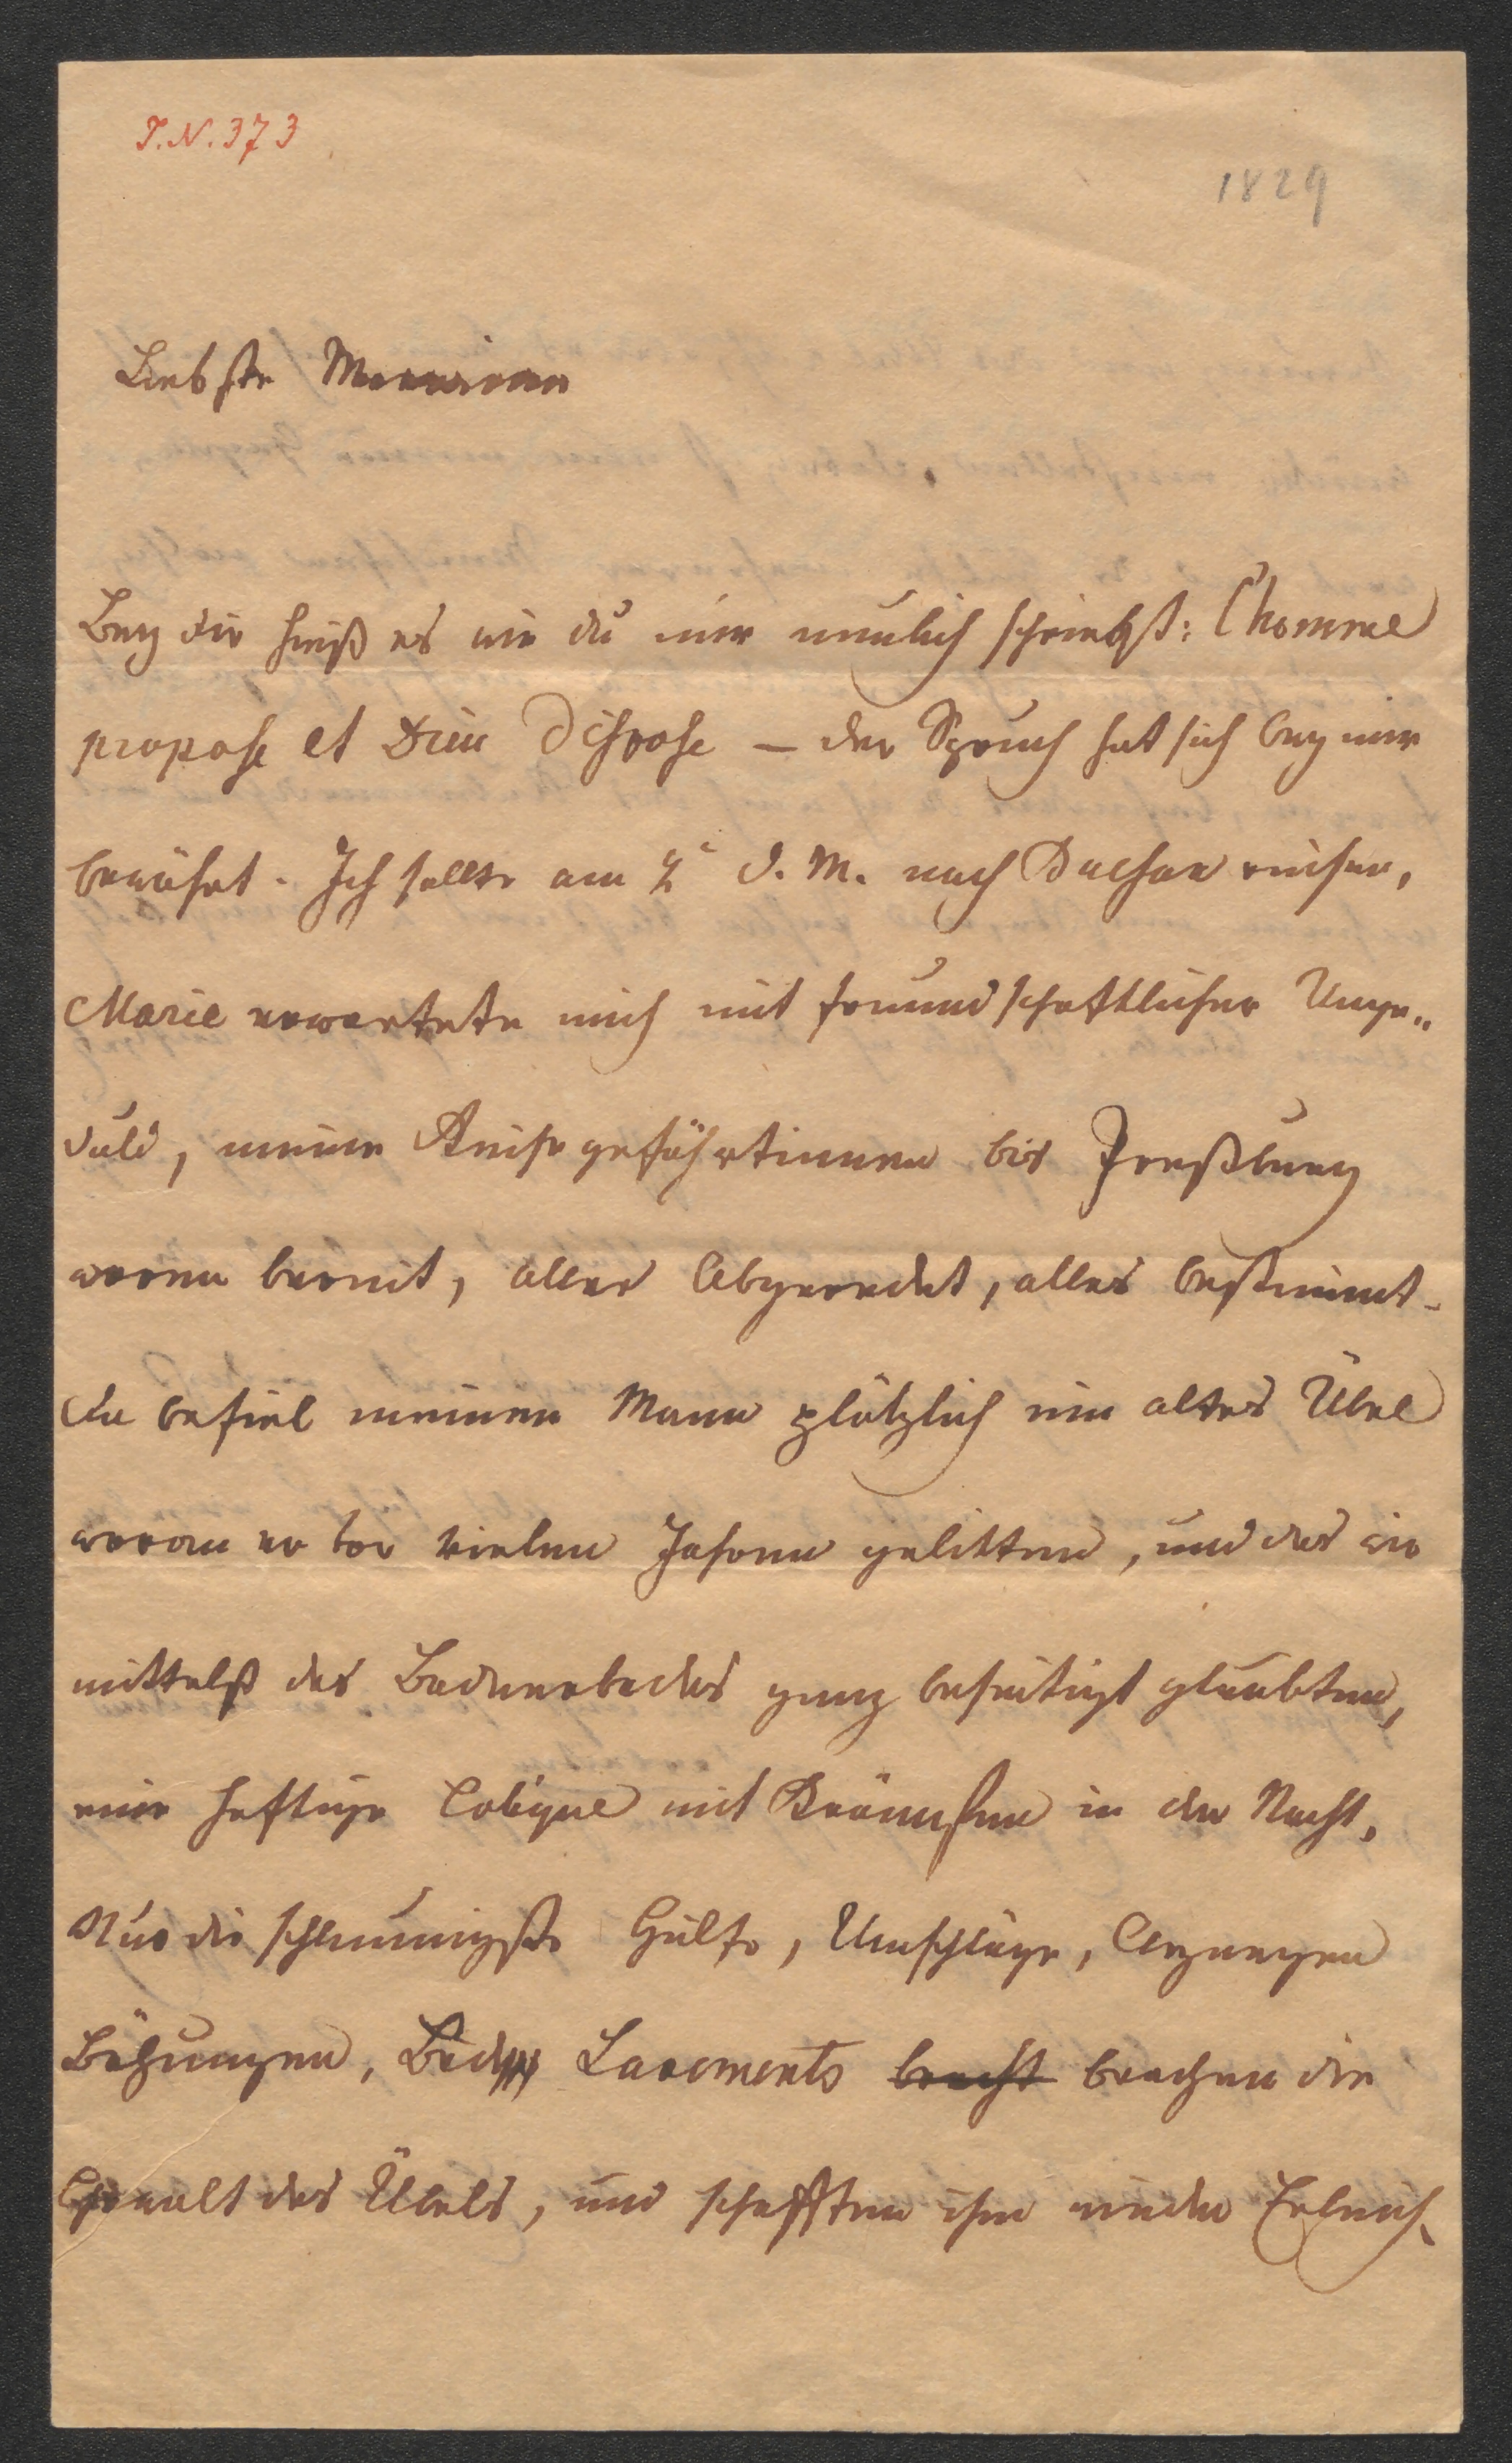 I.N. 373
1829
Liebste Marianne
Bey dir hieß es wie du mir neulich schriebst: l'homme
propose et Dieu dispose – der Spruch hat sich bey mir
bewährt. Ich sollte am 2t d. M. nach Dachau reisen,
Marie erwartete mich mit freundschaftlicher Unge„
duld, meine Reisegefährtinnen bis Preßburg
waren bereit, alles abgeredet, alles bestimmt –
da befiel meinen Mann plötzlich ein altes Übel
woran er vor vielen Jahren gelitten, und das wir
mittelst des Badnerbades ganz beseitigt glaubten,
eine heftige Colique mit Krämpfen in der Nacht.
Nur die schleunigste Hülfe, Umschläge, Arzneyen
Bähungen, Lavements bracht brachen die
Gewalt des Übels, und schafften ihm wieder Erleich„